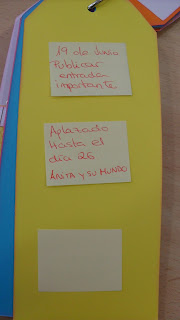 19 de Junio
Publicar
entrada
importante
Aplazado
Hasta el
día 26
ANITA Y SU MUNDO